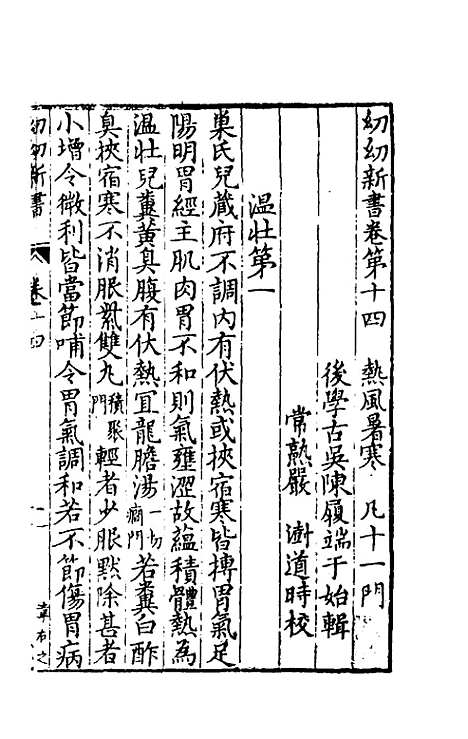 幼幼新書卷第十四　熱風暑寒　凡十一門
後學古吳陳履端于始輯
常熟嚴　澍道時校
溫壯第一
巢氏兒藏府不調內有伏熱或挾宿寒皆搏胃氣足
陽明胃經主肌肉胃不和則氣壅澀故蘊積體熱為
溫壯兒糞黃臭腹有伏熱宜龍膽湯一切癇門若糞白酢
臭挾宿寒不消服紫雙丸積聚門輕者少服黙除甚者
小增令微利皆當節哺令胃氣調和若不節傷胃病
幼幼新書　卷十四　一　章右之